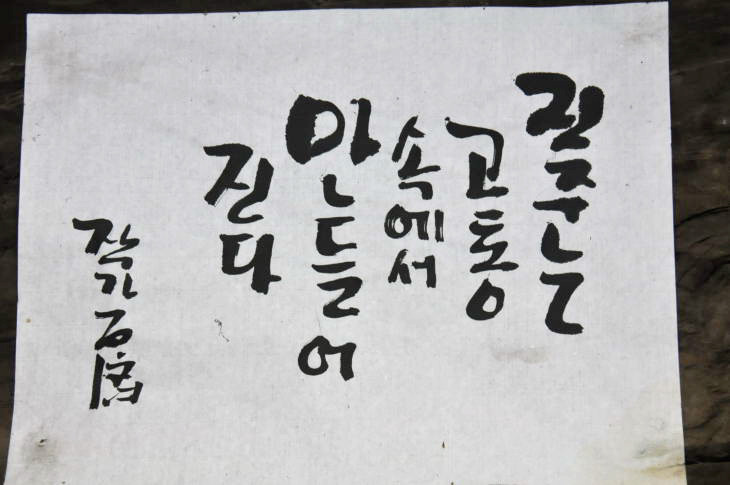 진주는
고통
속에서
만들어
진다
작가 石